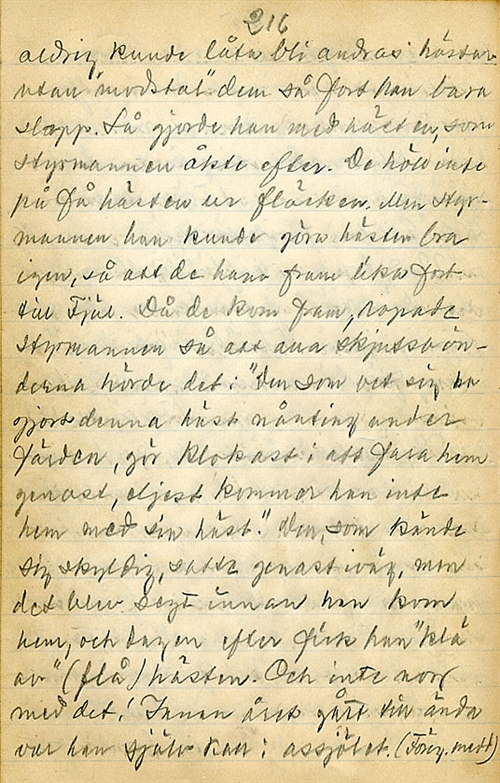 216
aldrig kunde låta bli andras hästar
utan "modstal" dem så fort han bara
slapp. Så gjorde han med hästen, som
styrmannen åkte efter. De höll inte
på få hästen ur fläcken. Men styr-
mannen han kunde göra hästen bra
igen, så att de hann fram lika fort
till Fjäl. Då de kom fram, ropade
styrmannen så att alla skjutsbön-
derna hörde det: "Den som vet sig ha
gjort denna häst nånting under
färden, gör klokast i att fara hem
genast, eljest kommer han inte
hem med sin häst." Den, som kände
sig skyldig, satte genast iväg, men
det blev segt innan han kom
hem, och dagen efter fick han "klä
av" (flå) hästen. Och inte nog
med det! Innan året gått till ända
var han själv kall: assjölet. (Föreg. medd)